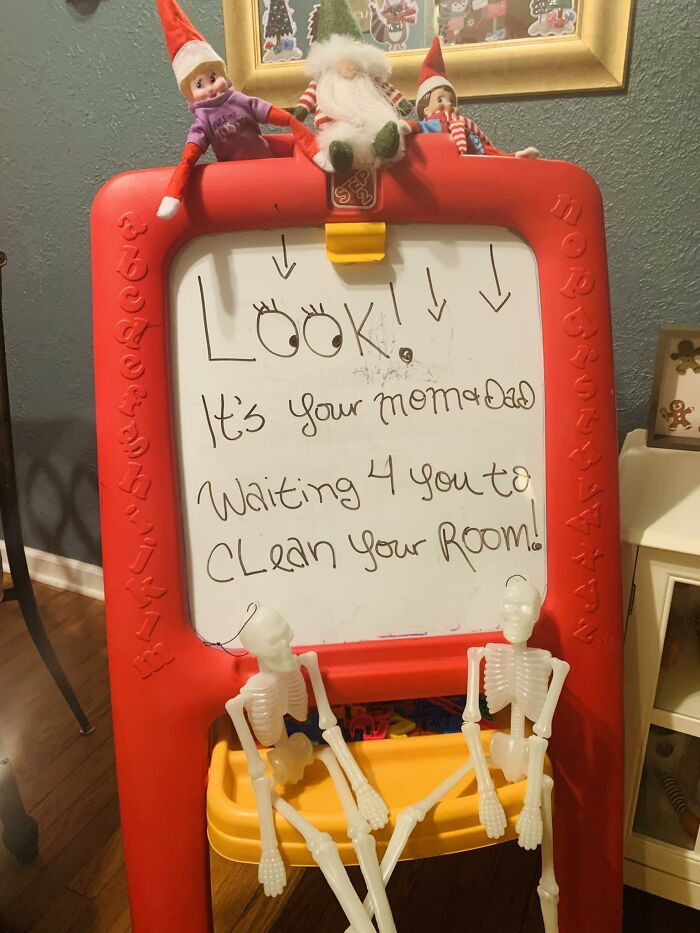 STEP 2
LOOK!
It's your mom & DaD
Waiting 4 you to
CLean your ROOM!
abcdefghijklm
nopqrstuvwxyz